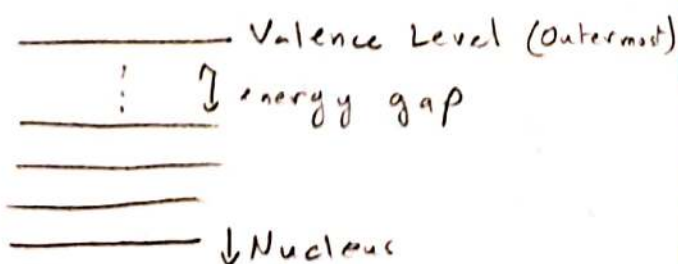 Valence Level (Outermost)
energy gap
↓ Nucleus